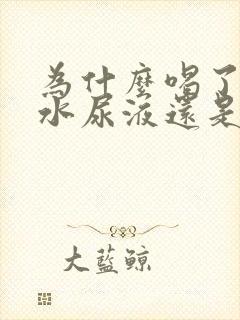 為什麼喝了
水尿液還是
大藍鯨